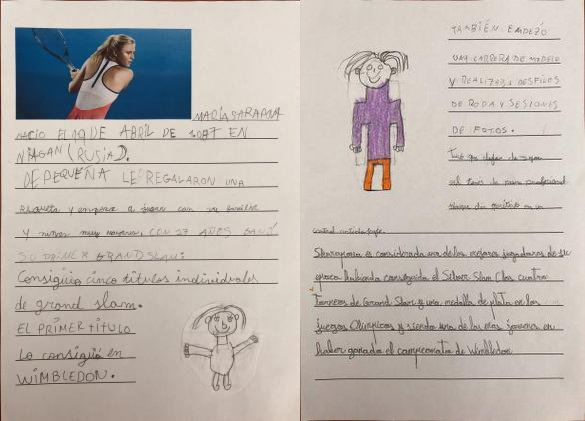 MARÍA SARAPOVA
NACIÓ EL 19 DE ABRIL DE 1987 EN
NIAGAN (RUSIA).
DE PEQUEÑA LE REGALARON UNA
RAQUETA y empezó a jugar con su familia
y niños muy mayores. CON 17 AÑOS GANÓ
SU PRIMER GRAND SLAM.
Consiguió cinco títulos individuales
de grand slam.
EL PRIMER TÍTULO
Lo consiguió en
WIMBLEDON.
TAMBIÉN EMPEZÓ
UNA CARRERA DE MODELO
Y REALIZABA DESFILES
DE ROPA Y SESIONES
DE FOTOS.
Tuvo que dejar de jugar
al tenis de forma profesional
porque dio positivo en un
control antidopaje.
Sharapova es considerada una de las mejores jugadoras de su
época habiendo conseguido el Silver Slam (los cuatro
Torneos de Grand Slam y una medalla de plata en los
juegos Olímpicos y siendo una de las más jóvenes en
haber ganado el campeonato de Wimbledon